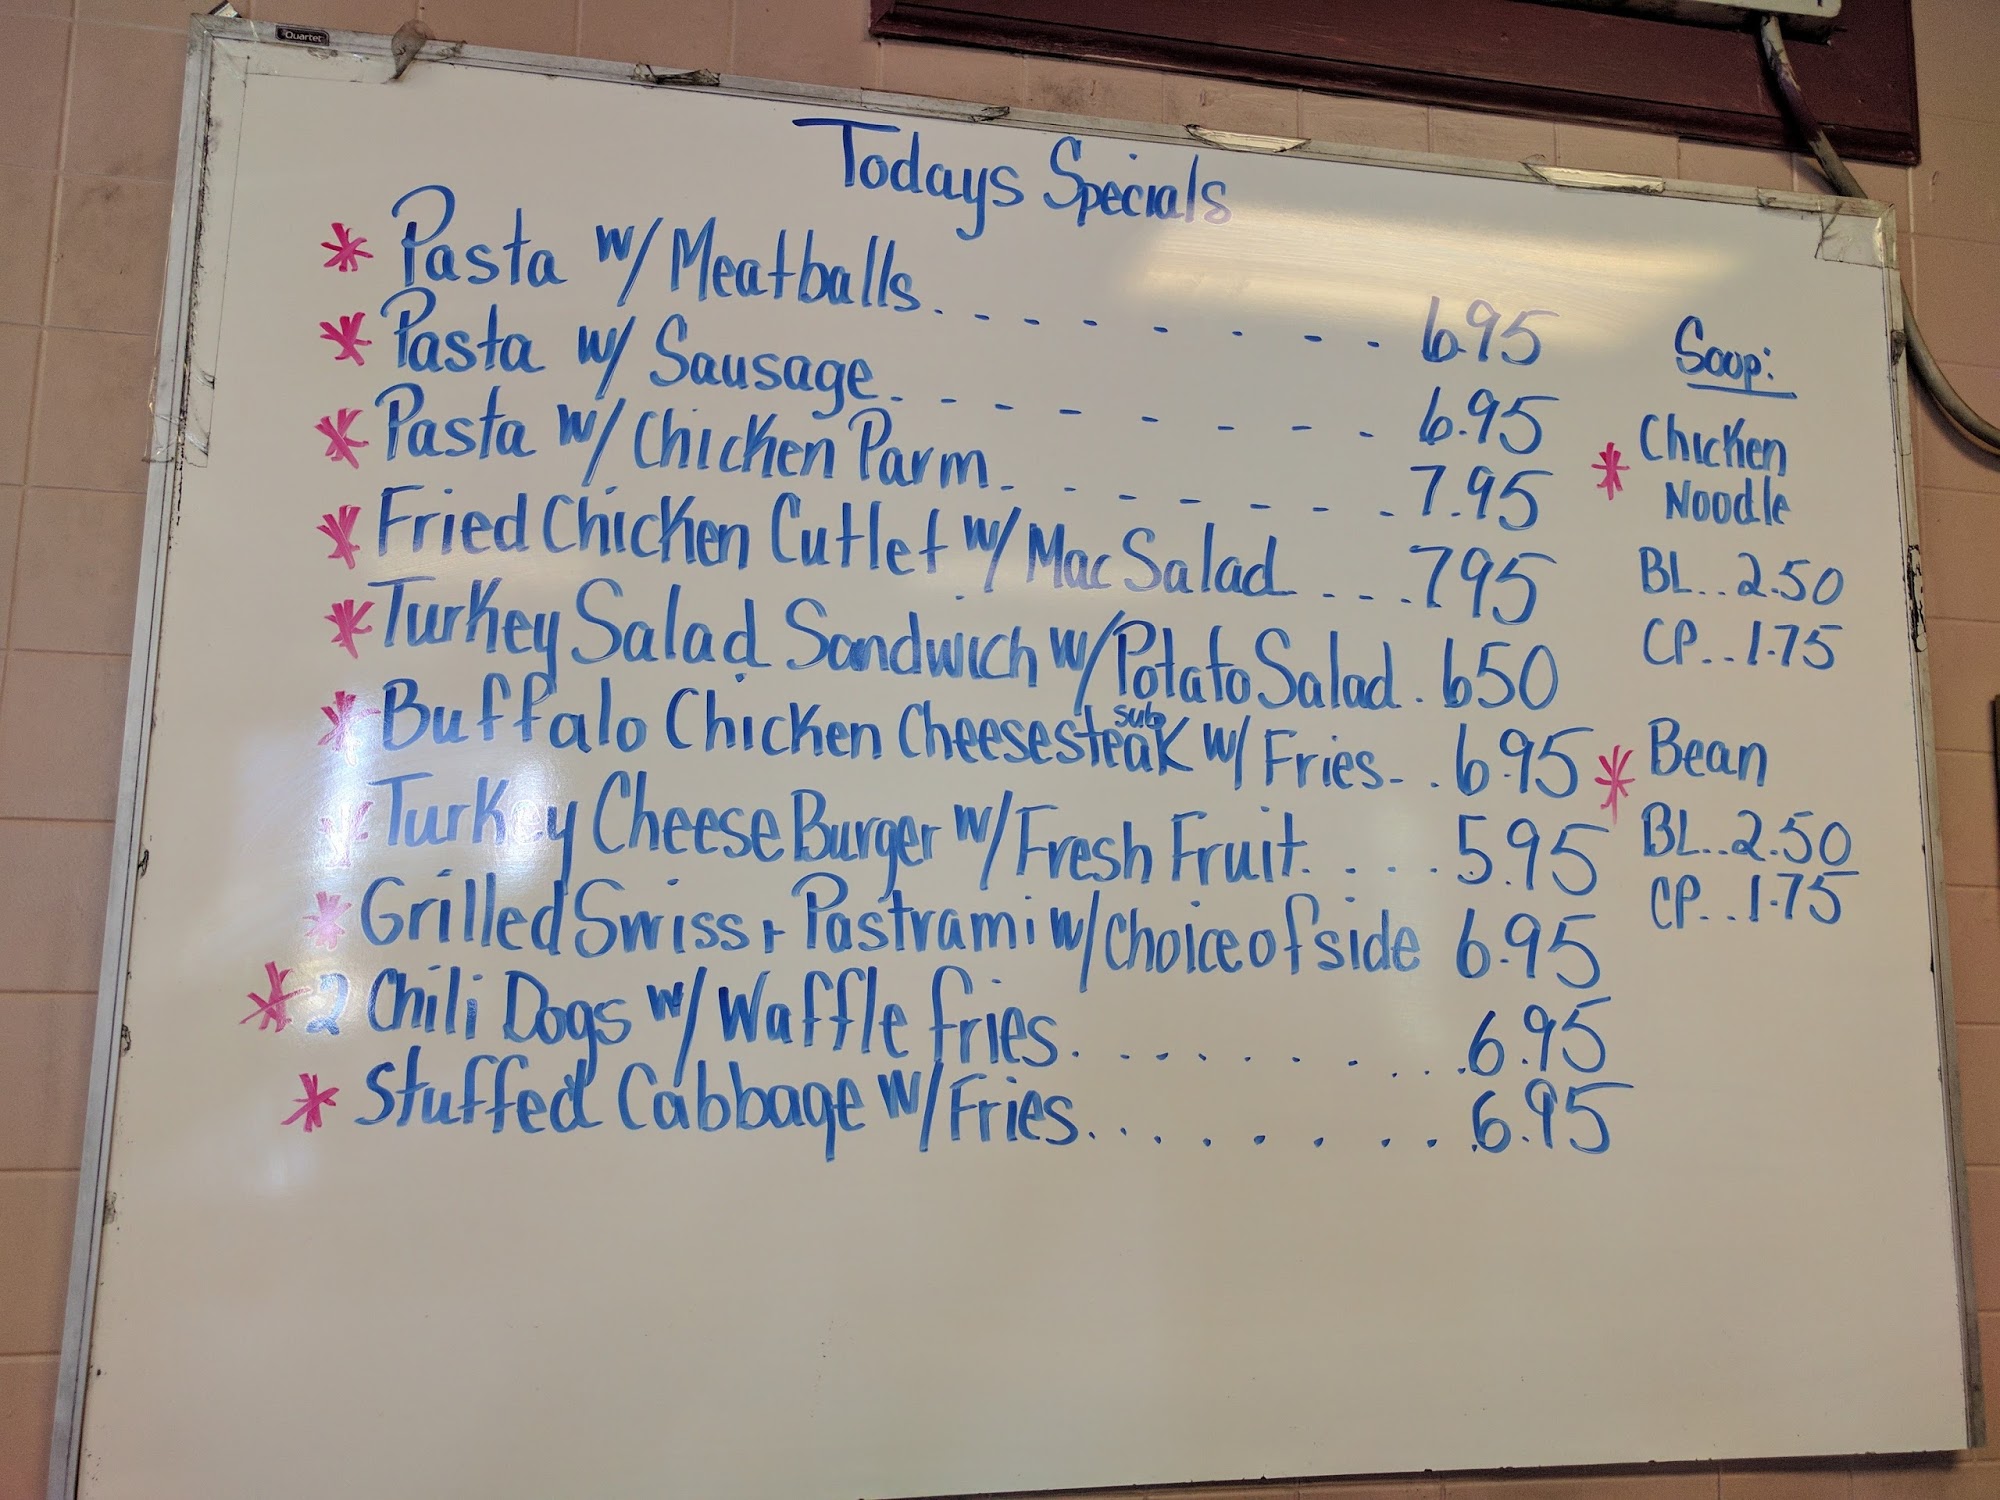 Quartet
Todays Specials
* Pasta w/ Meatballs. - - - - - - - 6.95
* Pasta w/ Sausage. - - - - - - - 6.95
* Pasta w/ Chicken Parm. - - - - - - 7.95
* Fried Chicken Cutlet w/ Mac Salad. - - . 795
* Turkey Salad Sandwich w/ Potato Salad . 650
* Buffalo Chicken Cheesesteak sub w/ Fries - . 6.95
* Turkey Cheese Burger w/ Fresh Fruit. . . . 5.95
* Grilled Swiss + Pastrami w/ Choice of side 6.95
* 2 Chili Dogs w/ Waffle fries. . . . . . . . . . 6.95
* Stuffed Cabbage w/ Fries. . . . . . . . . 6.95
Soup:
* Chicken
Noodle
BL.. 2.50
CP.. 1.75
* Bean
BL.. 2.50
CP.. 1.75